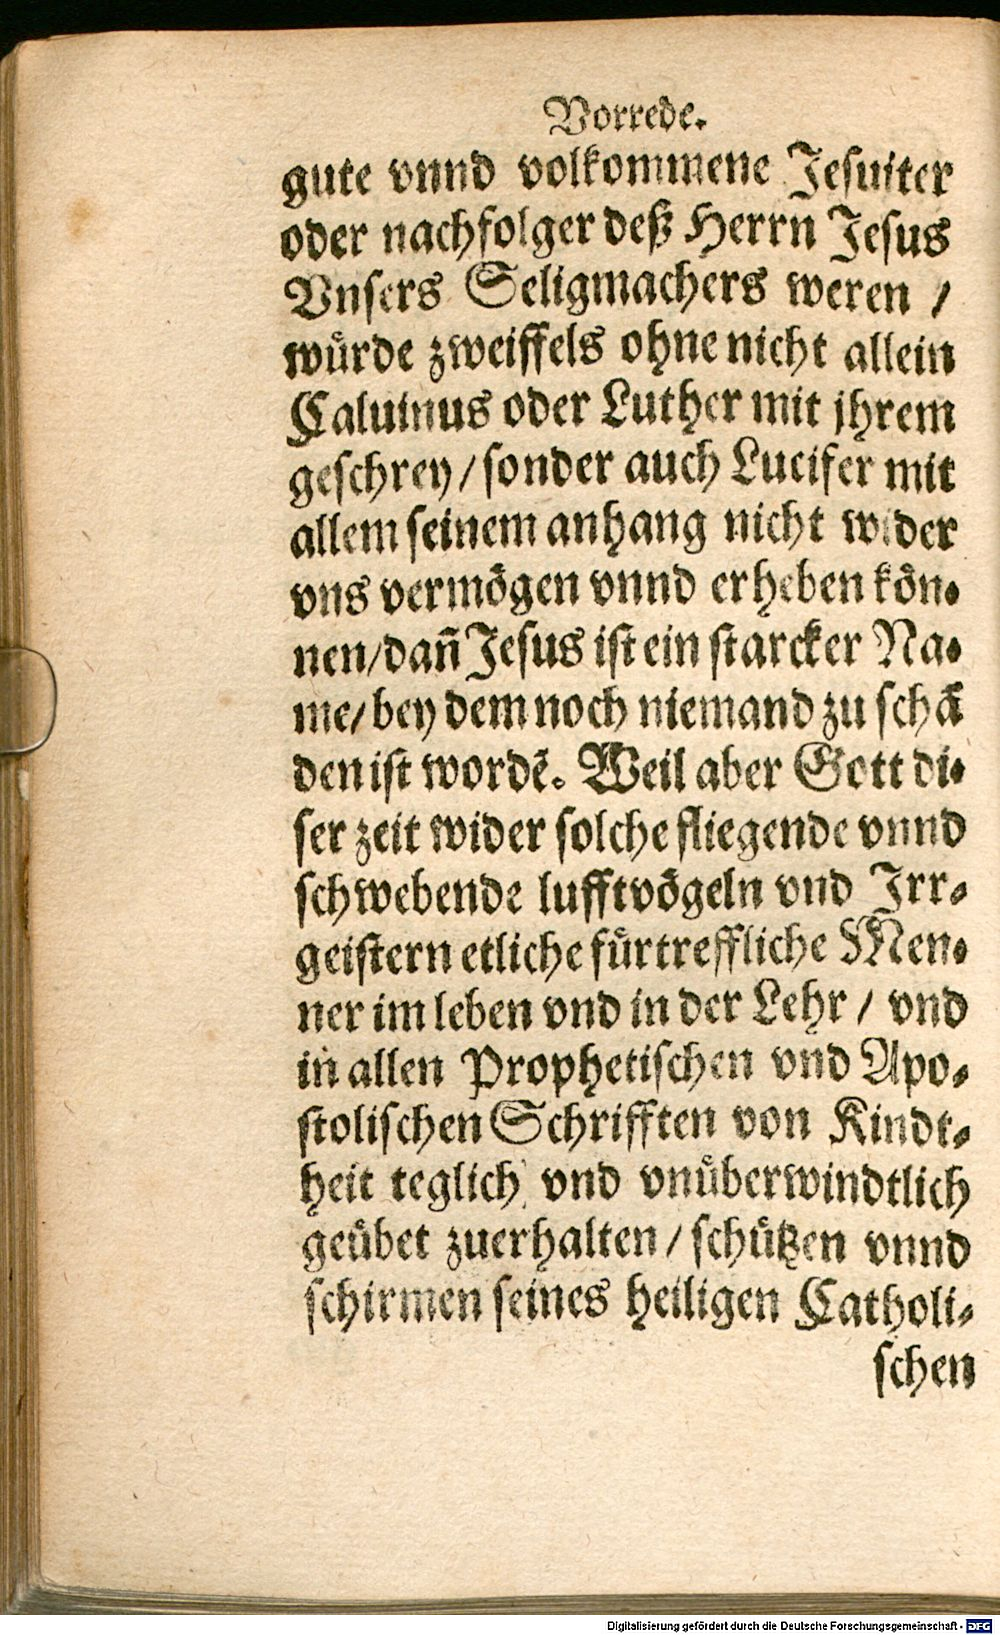 Vorrede.
gute vnnd volkommene Jesuiter
oder nachfolger deß Herrn Jesus
Vnsers Seligmachers weren /
wuͤrde zweiffels ohne nicht allein
Caluinus oder Luther mit jhrem
geschrey / sonder auch Lucifer mit
allem seinem anhang nicht wider
vns vermoͤgen vnnd erheben koͤn-
nen / dañ Jesus ist ein starcker Na-
me / bey dem noch niemand zu schã
den ist wordẽ. Weil aber Gott di-
ser zeit wider solche fliegende vnnd
schwebende lufftvoͤgeln vnd Irr-
geistern etliche fuͤrtreffliche Men-
ner im leben vnd in der Lehr / vnd
in allen Prophetischen vnd Apo-
stolischen Schrifften von Kindt-
heit teglich vnd vnuͤberwindtlich
geuͤbet zuerhalten / schuͤtzen vnnd
schirmen seines heiligen Catholi-
schen
Digitalisierung gefördert durch die Deutsche Forschungsgemeinschaft - DFG